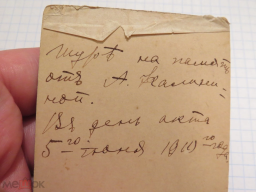 Шурѣ на память
отъ А. Калини-
ной.
Въ день акта
5-го июня 1910 го года